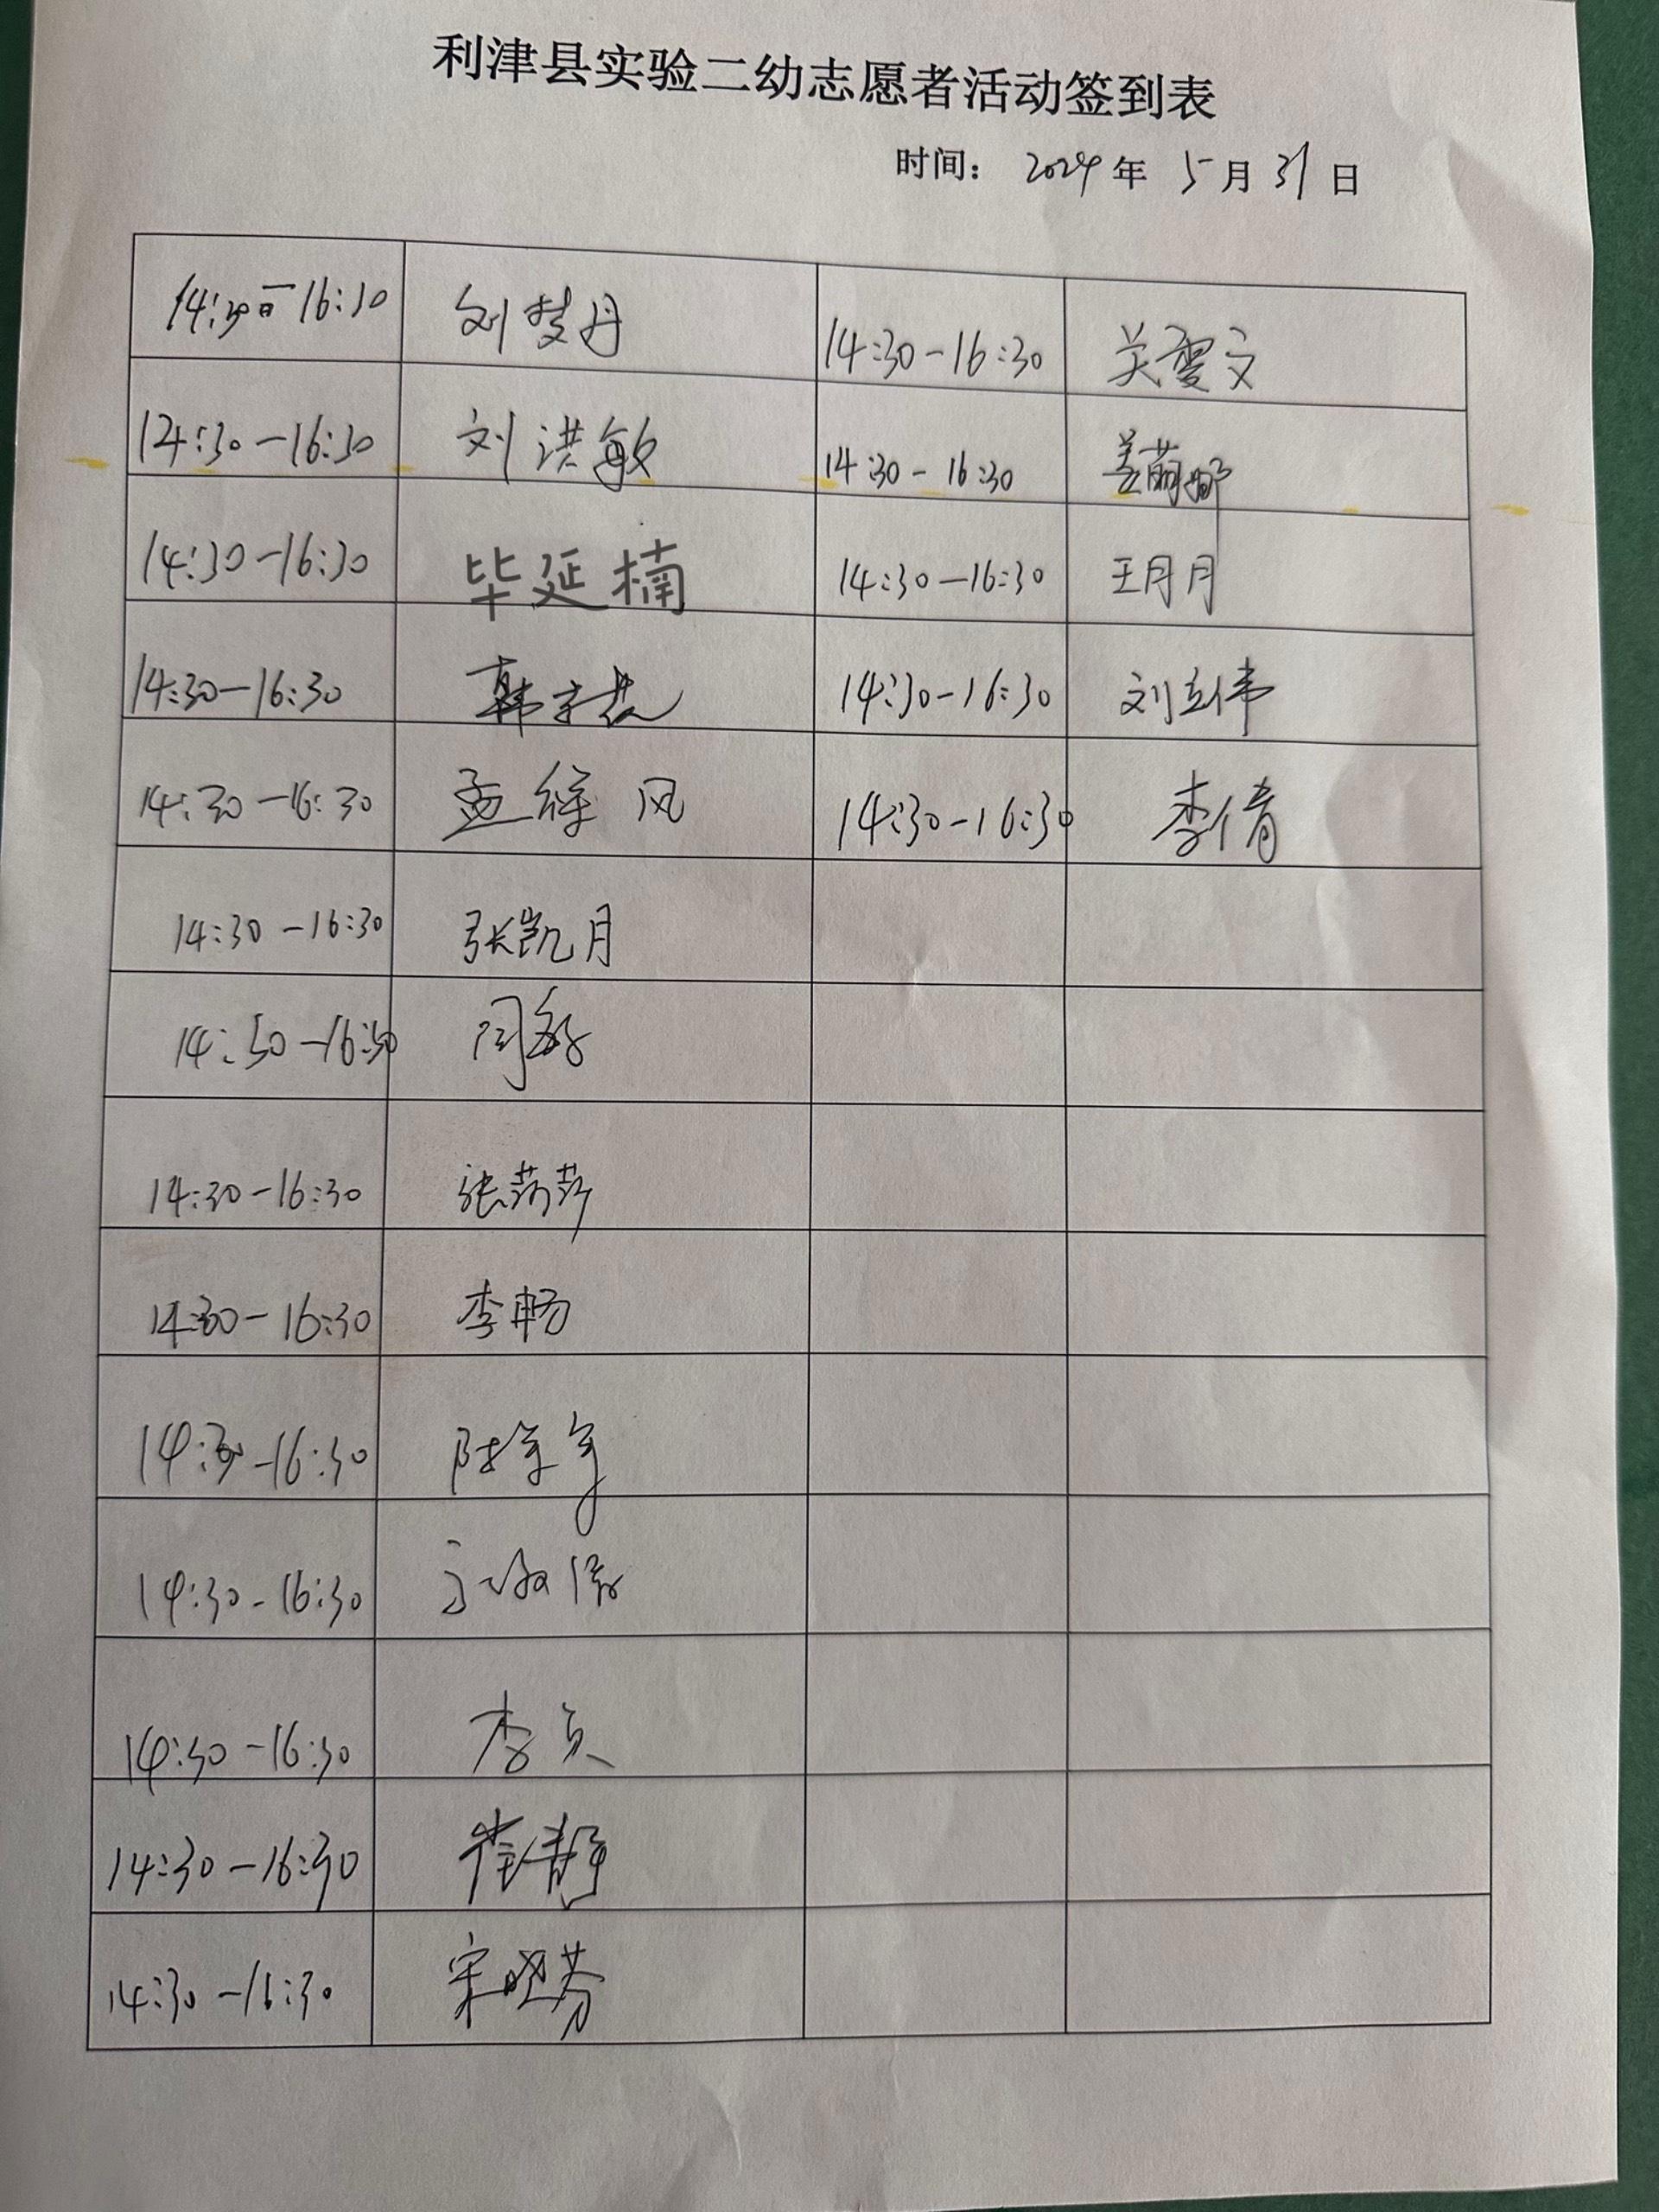 利津县实验二幼志愿者活动签到表
时间： 2024 年 5 月 31 日
14:30-16:30 刘梦丹 14:30-16:30 关雯文
14:30-16:30 刘洪敏 14:30-16:30 姜萌娜
14:30-16:30 毕延楠 14:30-16:30 王月月
14:30-16:30 韩 14:30-16:30 刘立伟
14:30-16:30 孟维风 14:30-16:30 李倩
14:30-16:30 张凯月
14:30-16:30 闫敏
14:30-16:30 张莎莎
14:30-16:30 李畅
14:30-16:30
14:30-16:30
14:30-16:30 李贞
14:30-16:30 崔静
14:30-16:30 宋晓芬